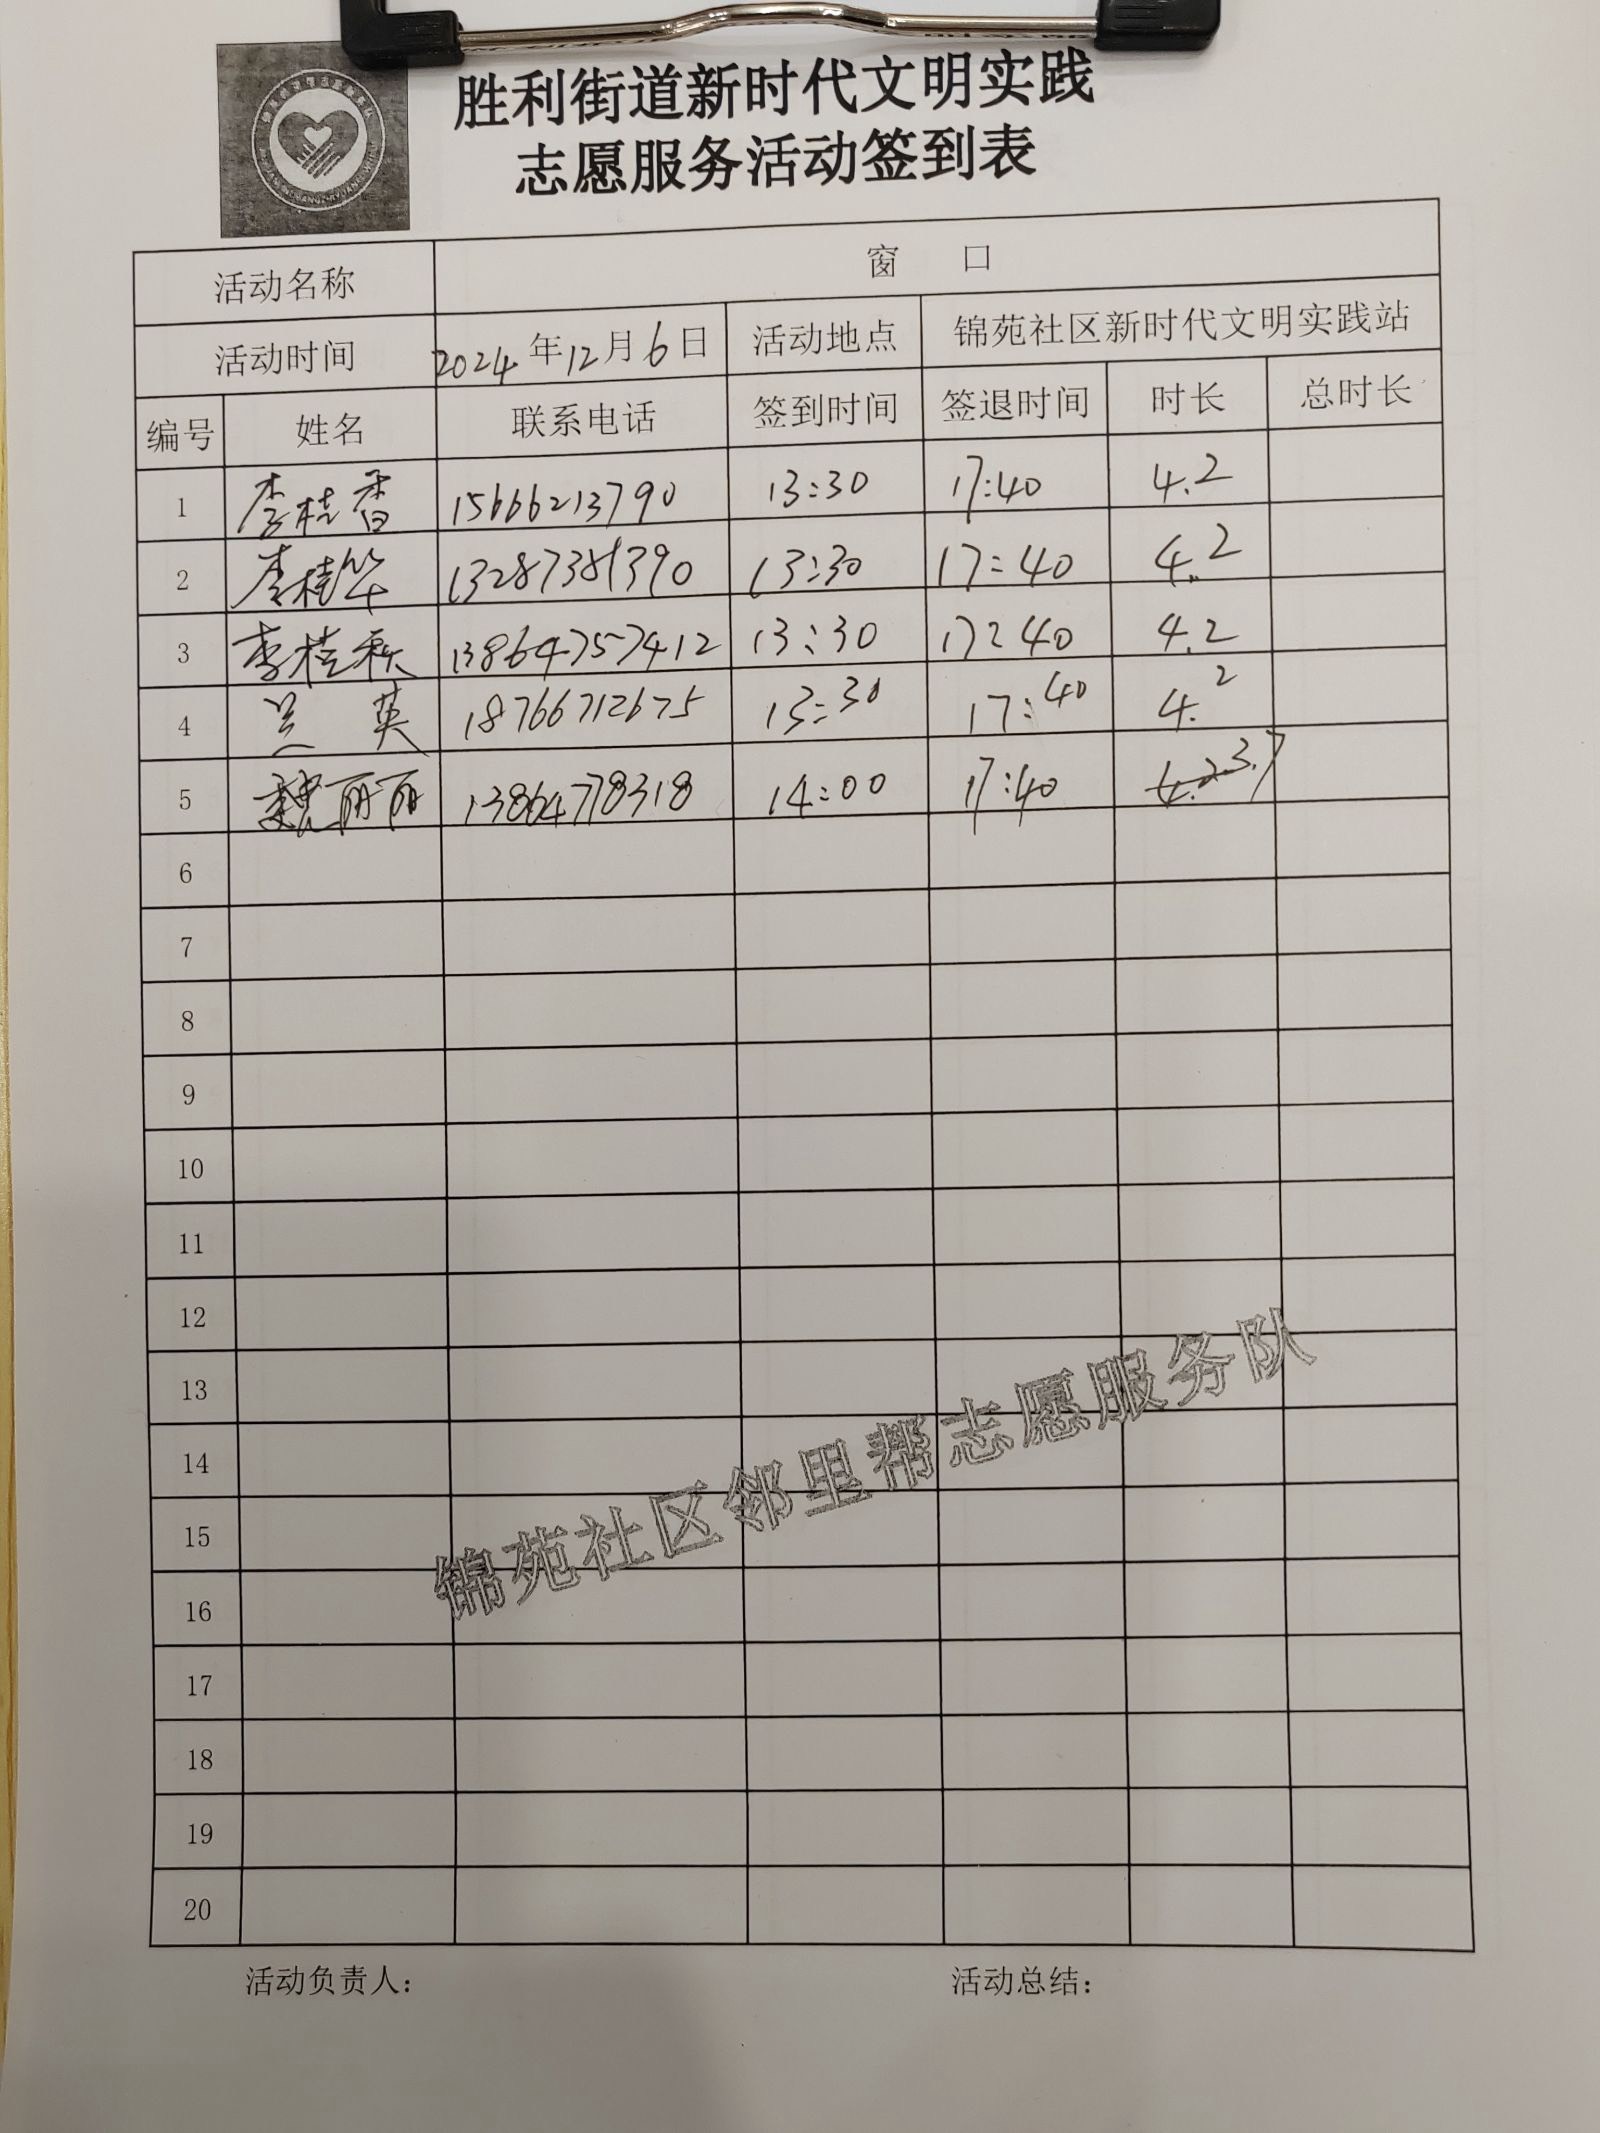 胜利街道新时代文明实践
志愿服务活动签到表
活动名称 窗 口
活动时间 2024年12月6日 活动地点 锦苑社区新时代文明实践站
编号 姓名 联系电话 签到时间 签退时间 时长 总时长
1 李桂香 15666213790 13:30 17:40 4.2
2 李桂华 13287381390 13:30 17:40 4.2
3 李桂秋 13864757412 13:30 17:40 4.2
4 兰英 18766712675 13:30 17:40 4.2
5 魏丽丽 13864778318 14:00 17:40 4.2 3.7
6
7
8
9
10
11
12
13
14
15
16
17
18
19
20
锦苑社区邻里帮志愿服务队
活动负责人: 活动总结: